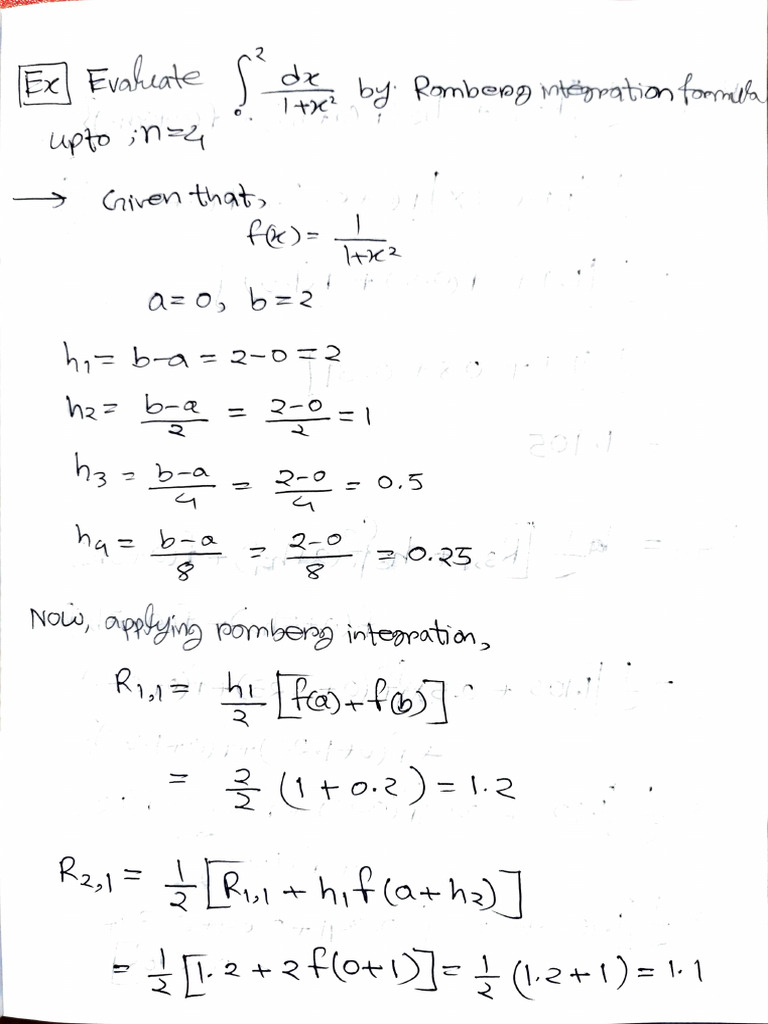 Ex Evaluate ∫₀² dx/(1+x²) by Romberg integration formula
upto ; n=4
→ Given that,
f(x) = 1/(1+x²)
a=0, b=2
h₁ = b-a = 2-0 = 2
h₂ = (b-a)/2 = (2-0)/2 = 1
h₃ = (b-a)/4 = (2-0)/4 = 0.5
h₄ = (b-a)/8 = (2-0)/8 = 0.25
Now, applying romberg integration,
R₁,₁ = h₁/2 [f(a)+f(b)]
= 2/2 (1+0.2) = 1.2
R₂,₁ = 1/2 [R₁,₁ + h₁f(a+h₂)]
= 1/2 [1.2 + 2f(0+1)] = 1/2 (1.2+1) = 1.1